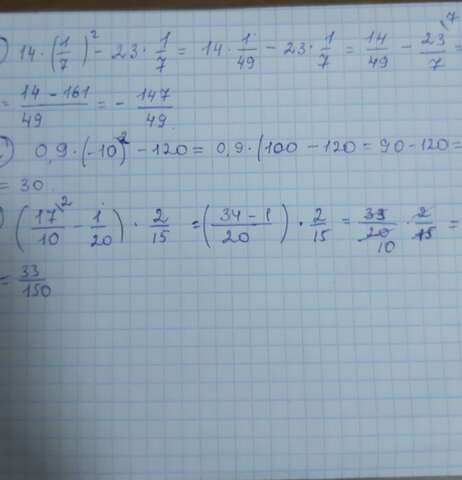 ) 14 · (1/7)² - 23 · 1/7 = 14 · 1/49 - 23 · 1/7 = 14/49 - 23/7 \7 =
= 14 - 161/49 = - 147/49.
) 0,9 · (-10)² - 120 = 0,9 · (100 - 120 = 90 - 120 =
= 30
) (17/10 \2 - 1/20) · 2/15 = (34 - 1/20) · 2/15 = 33/20 10 · 2/15 =
= 33/150